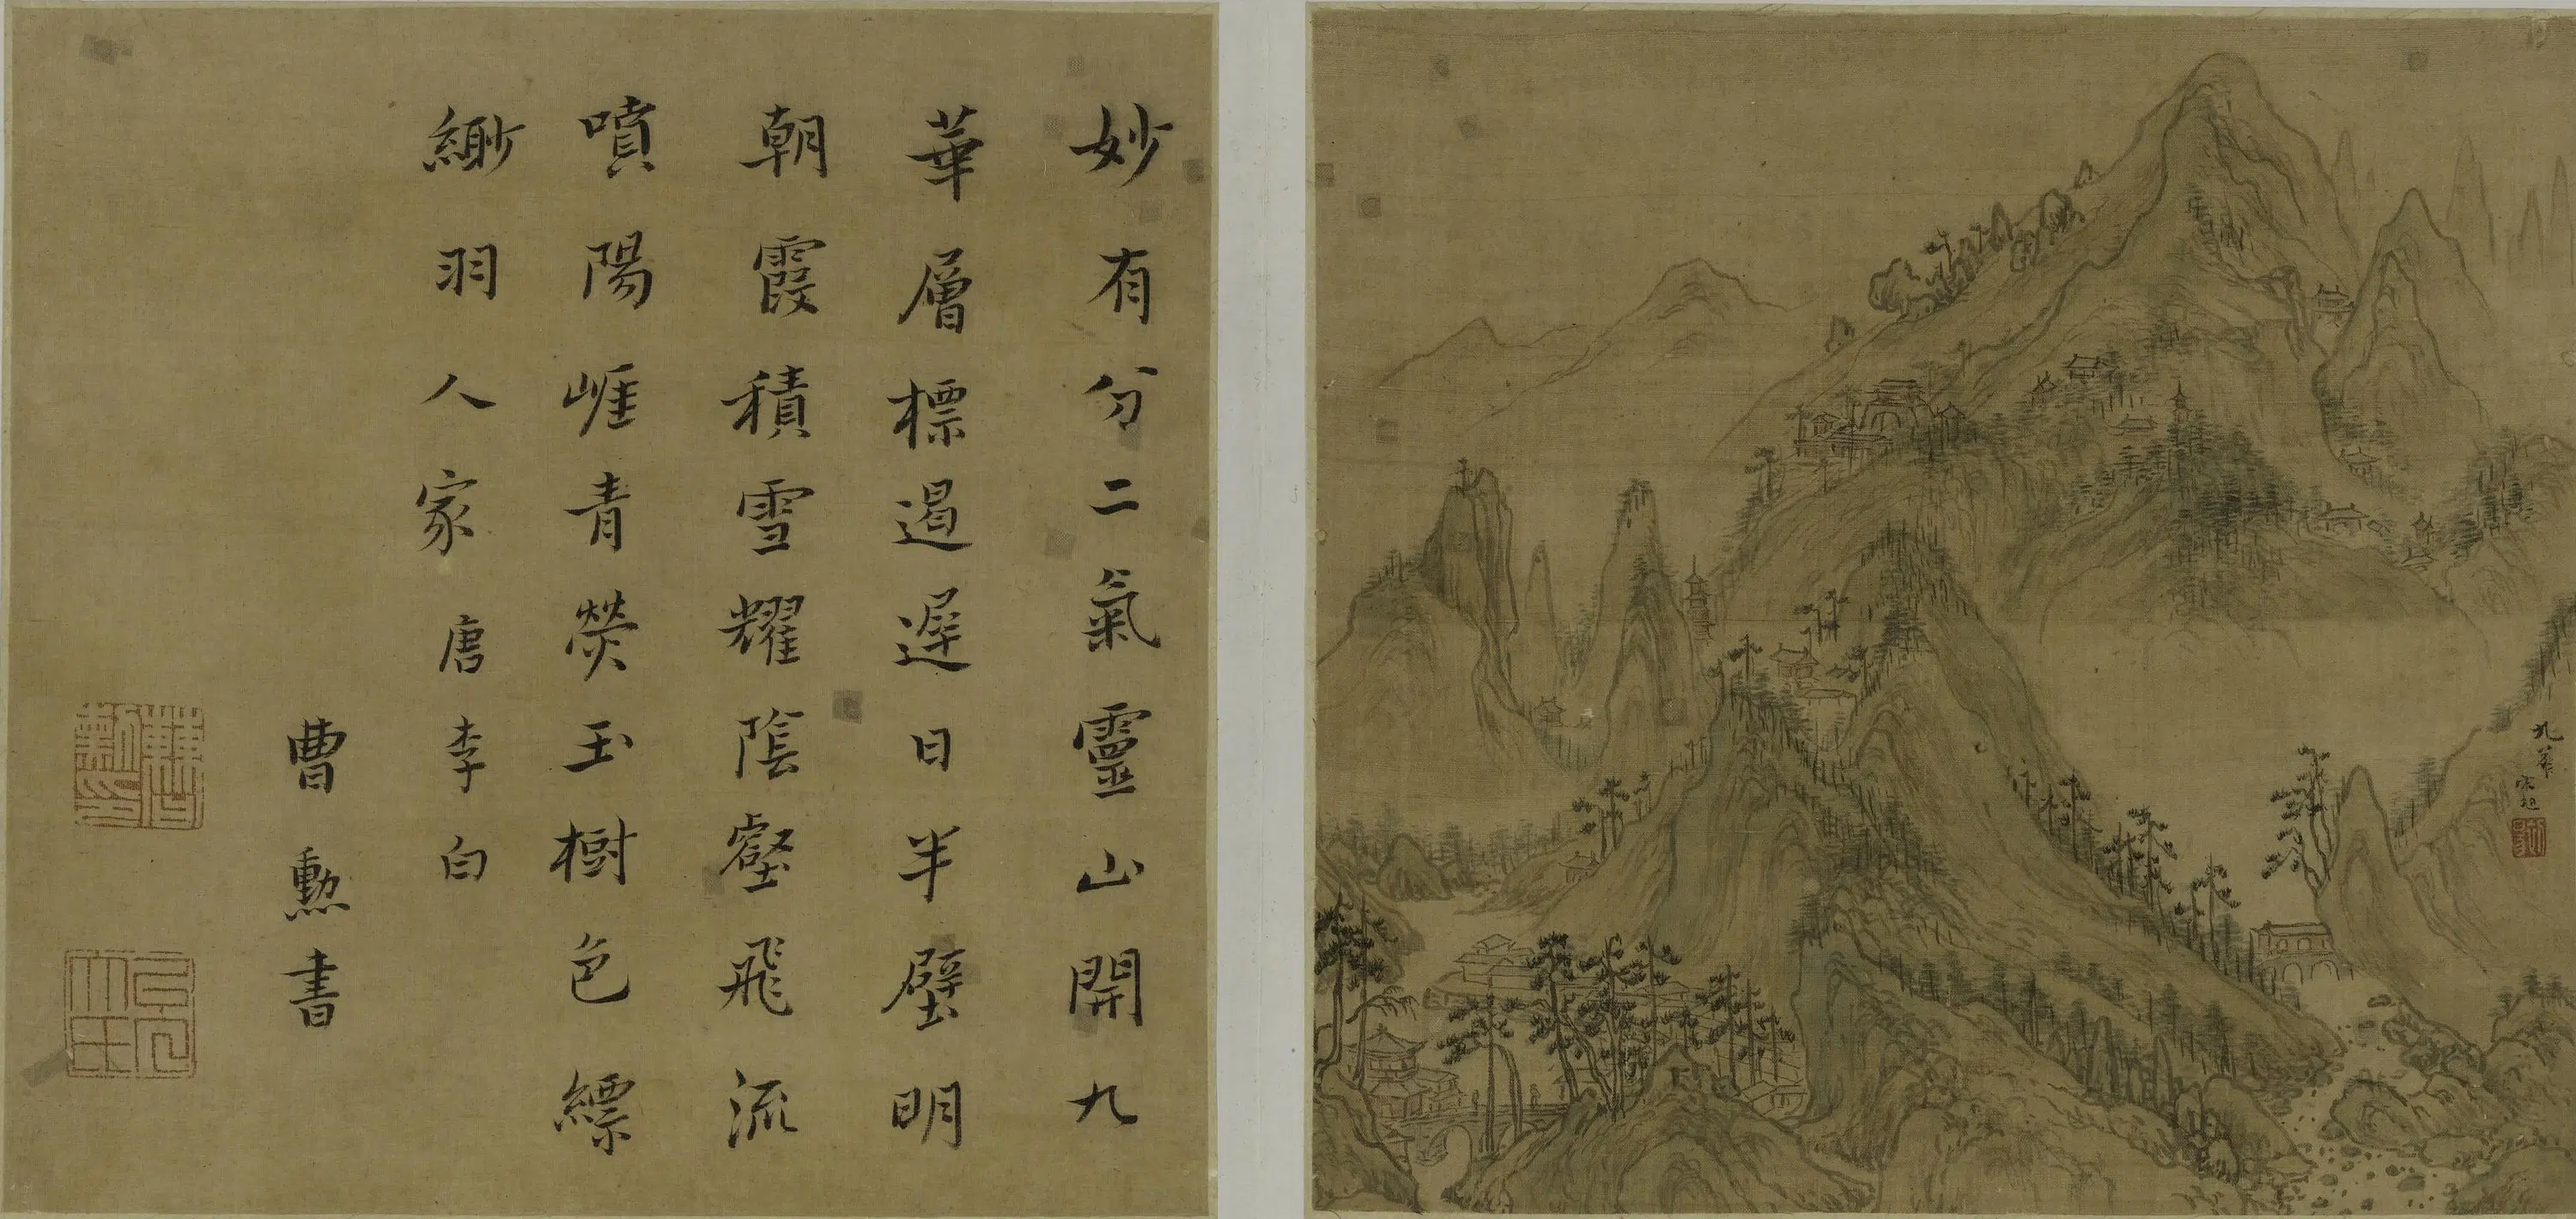 妙有分二氣靈山開九
華層標遏遲日半壁明
朝霞積雪耀陰壑飛流
噴陽崖青熒玉樹色縹
緲羽人家 唐李白
曹勳書
九華
宋旭